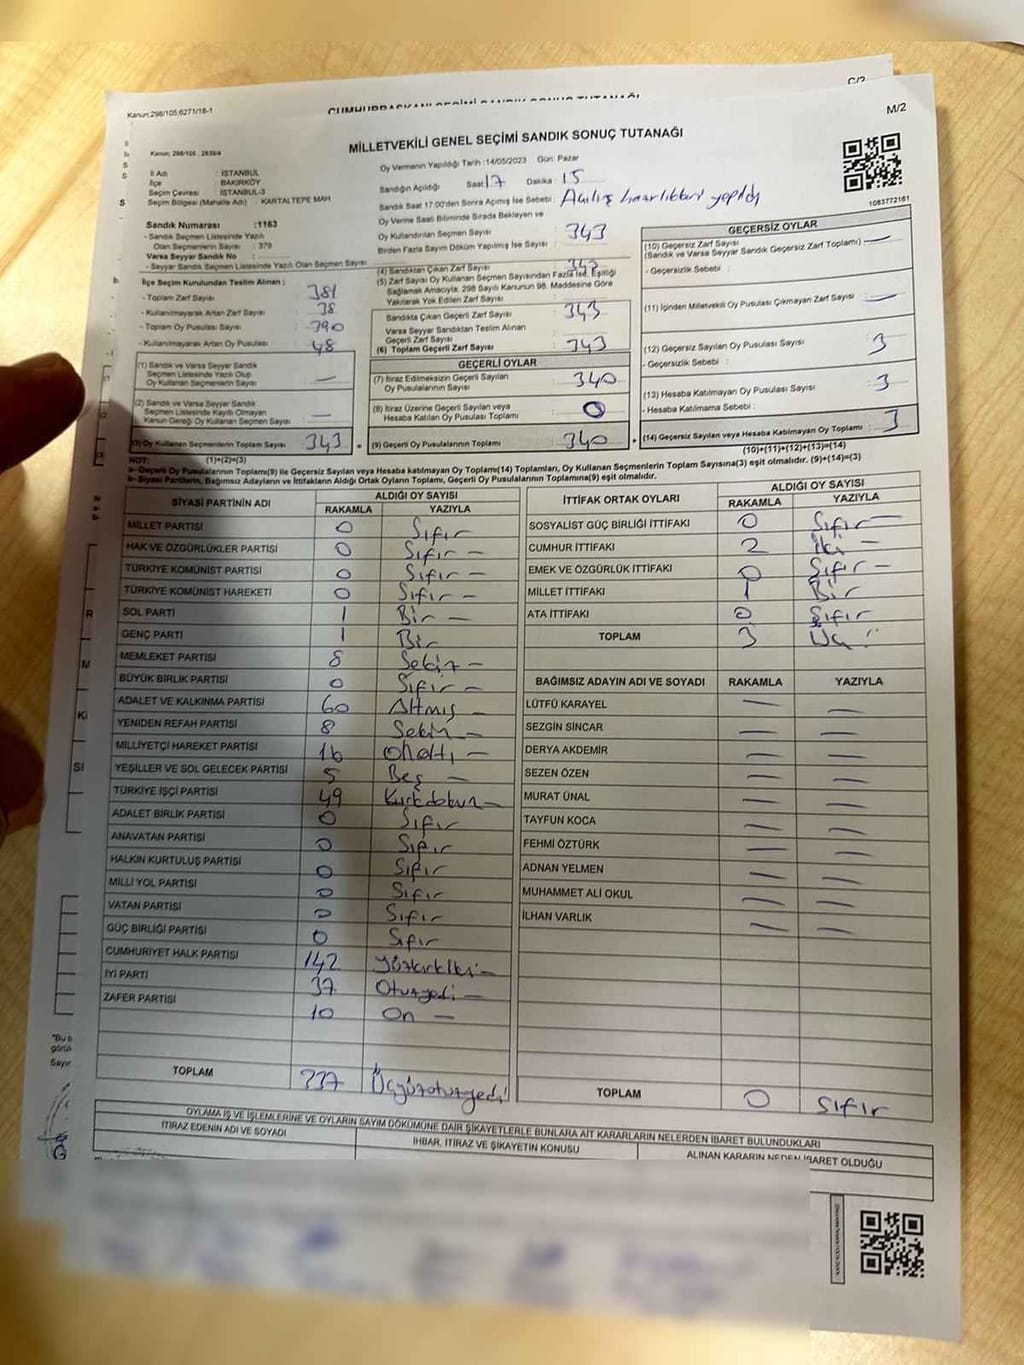 C/2
Kanun;298/105;6271/18-1
CUMHURBAŞKANI SEÇİMİ SANDIK SONUÇ TUTANAĞI
M/2
MİLLETVEKİLİ GENEL SEÇİMİ SANDIK SONUÇ TUTANAĞI
Kanun; 298/105 , 2839/4
İl Adı : İSTANBUL
İlçe : BAKIRKÖY
Seçim Çevresi : İSTANBUL-3
Seçim Bölgesi (Mahalle Adı) : KARTALTEPE MAH
Oy Vermenin Yapıldığı Tarih :14/05/2023 Gün: Pazar
Sandığın Açıldığı Saat: 17 Dakika : 15
Sandık Saat 17:00'den Sonra Açılmış İse Sebebi : Açılış hazırlıkları yapıldı
1083772161
Sandık Numarası :1163
- Sandık Seçmen Listesinde Yazılı
Olan Seçmenlerin Sayısı : 379
Varsa Seyyar Sandık No :
- Seyyar Sandık Seçmen Listesinde Yazılı Olan Seçmen Sayısı
Oy Verme Saati Bitiminde Sırada Bekleyen ve
Oy Kullandırılan Seçmen Sayısı : 343
Birden Fazla Sayım Döküm Yapılmış İse Sayısı :
İlçe Seçim Kurulundan Teslim Alınan ;
- Toplam Zarf Sayısı : 381
- Kullanılmayarak Artan Zarf Sayısı : 38
- Toplam Oy Pusulası Sayısı : 390
- Kullanılmayarak Artan Oy Pusulası : 48
(1) Sandık ve Varsa Seyyar Sandık
Seçmen Listesinde Yazılı Olup
Oy Kullanan Seçmenlerin Sayısı : —
(2) Sandık ve Varsa Seyyar Sandık
Seçmen Listesinde Kayıtlı Olmayan
Kanun Gereği Oy Kullanan Seçmen Sayısı : —
(3) Oy Kullanan Seçmenlerin Toplam Sayısı : 343
(1)+(2)=(3)
(4) Sandıktan Çıkan Zarf Sayısı : 343
(5) Zarf Sayısı Oy Kullanan Seçmen Sayısından Fazla İse, Eşitliği
Sağlamak Amacıyla; 298 Sayılı Kanunun 98. Maddesine Göre
Yakılarak Yok Edilen Zarf Sayısı :
Sandıkta Çıkan Geçerli Zarf Sayısı : 343
Varsa Seyyar Sandıktan Teslim Alınan
Geçerli Zarf Sayısı :
(6) Toplam Geçerli Zarf Sayısı : 343
GEÇERLİ OYLAR
(7) İtiraz Edilmeksizin Geçerli Sayılan
Oy Pusulalarının Sayısı : 340
(8) İtiraz Üzerine Geçerli Sayılan veya
Hesaba Katılan Oy Pusulası Toplamı : 0
(9) Geçerli Oy Pusulalarının Toplamı : 340
GEÇERSİZ OYLAR
(10) Geçersiz Zarf Sayısı
(Sandık ve Varsa Seyyar Sandık Geçersiz Zarf Toplamı) : —
- Geçersizlik Sebebi :
(11) İçinden Milletvekili Oy Pusulası Çıkmayan Zarf Sayısı : —
(12) Geçersiz Sayılan Oy Pusulası Sayısı : 3
- Geçersizlik Sebebi :
(13) Hesaba Katılmayan Oy Pusulası Sayısı : 3
- Hesaba Katılmama Sebebi :
(14) Geçersiz Sayılan veya Hesaba Katılmayan Oy Toplamı : 3
(10)+(11)+(12)+(13)=(14)
NOT:
a- Geçerli Oy Pusulalarının Toplamı(9) ile Geçersiz Sayılan veya Hesaba katılmayan Oy Toplamı(14) Toplamları, Oy Kullanan Seçmenlerin Toplam Sayısına(3) eşit olmalıdır. (9)+(14)=(3)
b- Siyasi Partilerin, Bağımsız Adayların ve İttifakların Aldığı Ortak Oyların Toplamı, Geçerli Oy Pusulalarının Toplamına(9) eşit olmalıdır.
SİYASİ PARTİNİN ADI ALDIĞI OY SAYISI
RAKAMLA YAZIYLA
MİLLET PARTİSİ 0 Sıfır
HAK VE ÖZGÜRLÜKLER PARTİSİ 0 Sıfır —
TÜRKİYE KOMÜNİST PARTİSİ 0 Sıfır —
TÜRKİYE KOMÜNİST HAREKETİ 0 Sıfır —
SOL PARTİ 1 Bir —
GENÇ PARTİ 1 Bir
MEMLEKET PARTİSİ 8 Sekiz —
BÜYÜK BİRLİK PARTİSİ 0 Sıfır —
ADALET VE KALKINMA PARTİSİ 60 Altmış —
YENİDEN REFAH PARTİSİ 8 Sekiz —
MİLLİYETÇİ HAREKET PARTİSİ 16 Onaltı —
YEŞİLLER VE SOL GELECEK PARTİSİ 5 Beş —
TÜRKİYE İŞÇİ PARTİSİ 49 Kırkdokuz —
ADALET BİRLİK PARTİSİ 0 Sıfır
ANAVATAN PARTİSİ 0 Sıfır
HALKIN KURTULUŞ PARTİSİ 0 Sıfır
MİLLİ YOL PARTİSİ 0 Sıfır
VATAN PARTİSİ 0 Sıfır
GÜÇ BİRLİĞİ PARTİSİ 0 Sıfır
CUMHURİYET HALK PARTİSİ 142 Yüzkırkiki —
İYİ PARTİ 37 Otuzyedi —
ZAFER PARTİSİ 10 On —
TOPLAM 337 Üçyüzotuzyedi
İTTİFAK ORTAK OYLARI ALDIĞI OY SAYISI
RAKAMLA YAZIYLA
SOSYALİST GÜÇ BİRLİĞİ İTTİFAKI 0 Sıfır —
CUMHUR İTTİFAKI 2 İki —
EMEK VE ÖZGÜRLÜK İTTİFAKI 0 Sıfır —
MİLLET İTTİFAKI 1 Bir
ATA İTTİFAKI 0 Sıfır
TOPLAM 3 Üç
BAĞIMSIZ ADAYIN ADI VE SOYADI RAKAMLA YAZIYLA
LÜTFÜ KARAYEL — —
SEZGİN SİNCAR — —
DERYA AKDEMİR — —
SEZEN ÖZEN — —
MURAT ÜNAL — —
TAYFUN KOCA — —
FEHMİ ÖZTÜRK — —
ADNAN YELMEN — —
MUHAMMET ALİ OKUL — —
İLHAN VARLIK — —
TOPLAM 0 Sıfır
OYLAMA İŞ VE İŞLEMLERİNE VE OYLARIN SAYIM DÖKÜMÜNE DAİR ŞİKAYETLERLE BUNLARA AİT KARARLARIN NELERDEN İBARET BULUNDUKLARI
İTİRAZ EDENİN ADI VE SOYADI İHBAR, İTİRAZ VE ŞİKAYETİN KONUSU ALINAN KARARIN NEDEN İBARET OLDUĞU